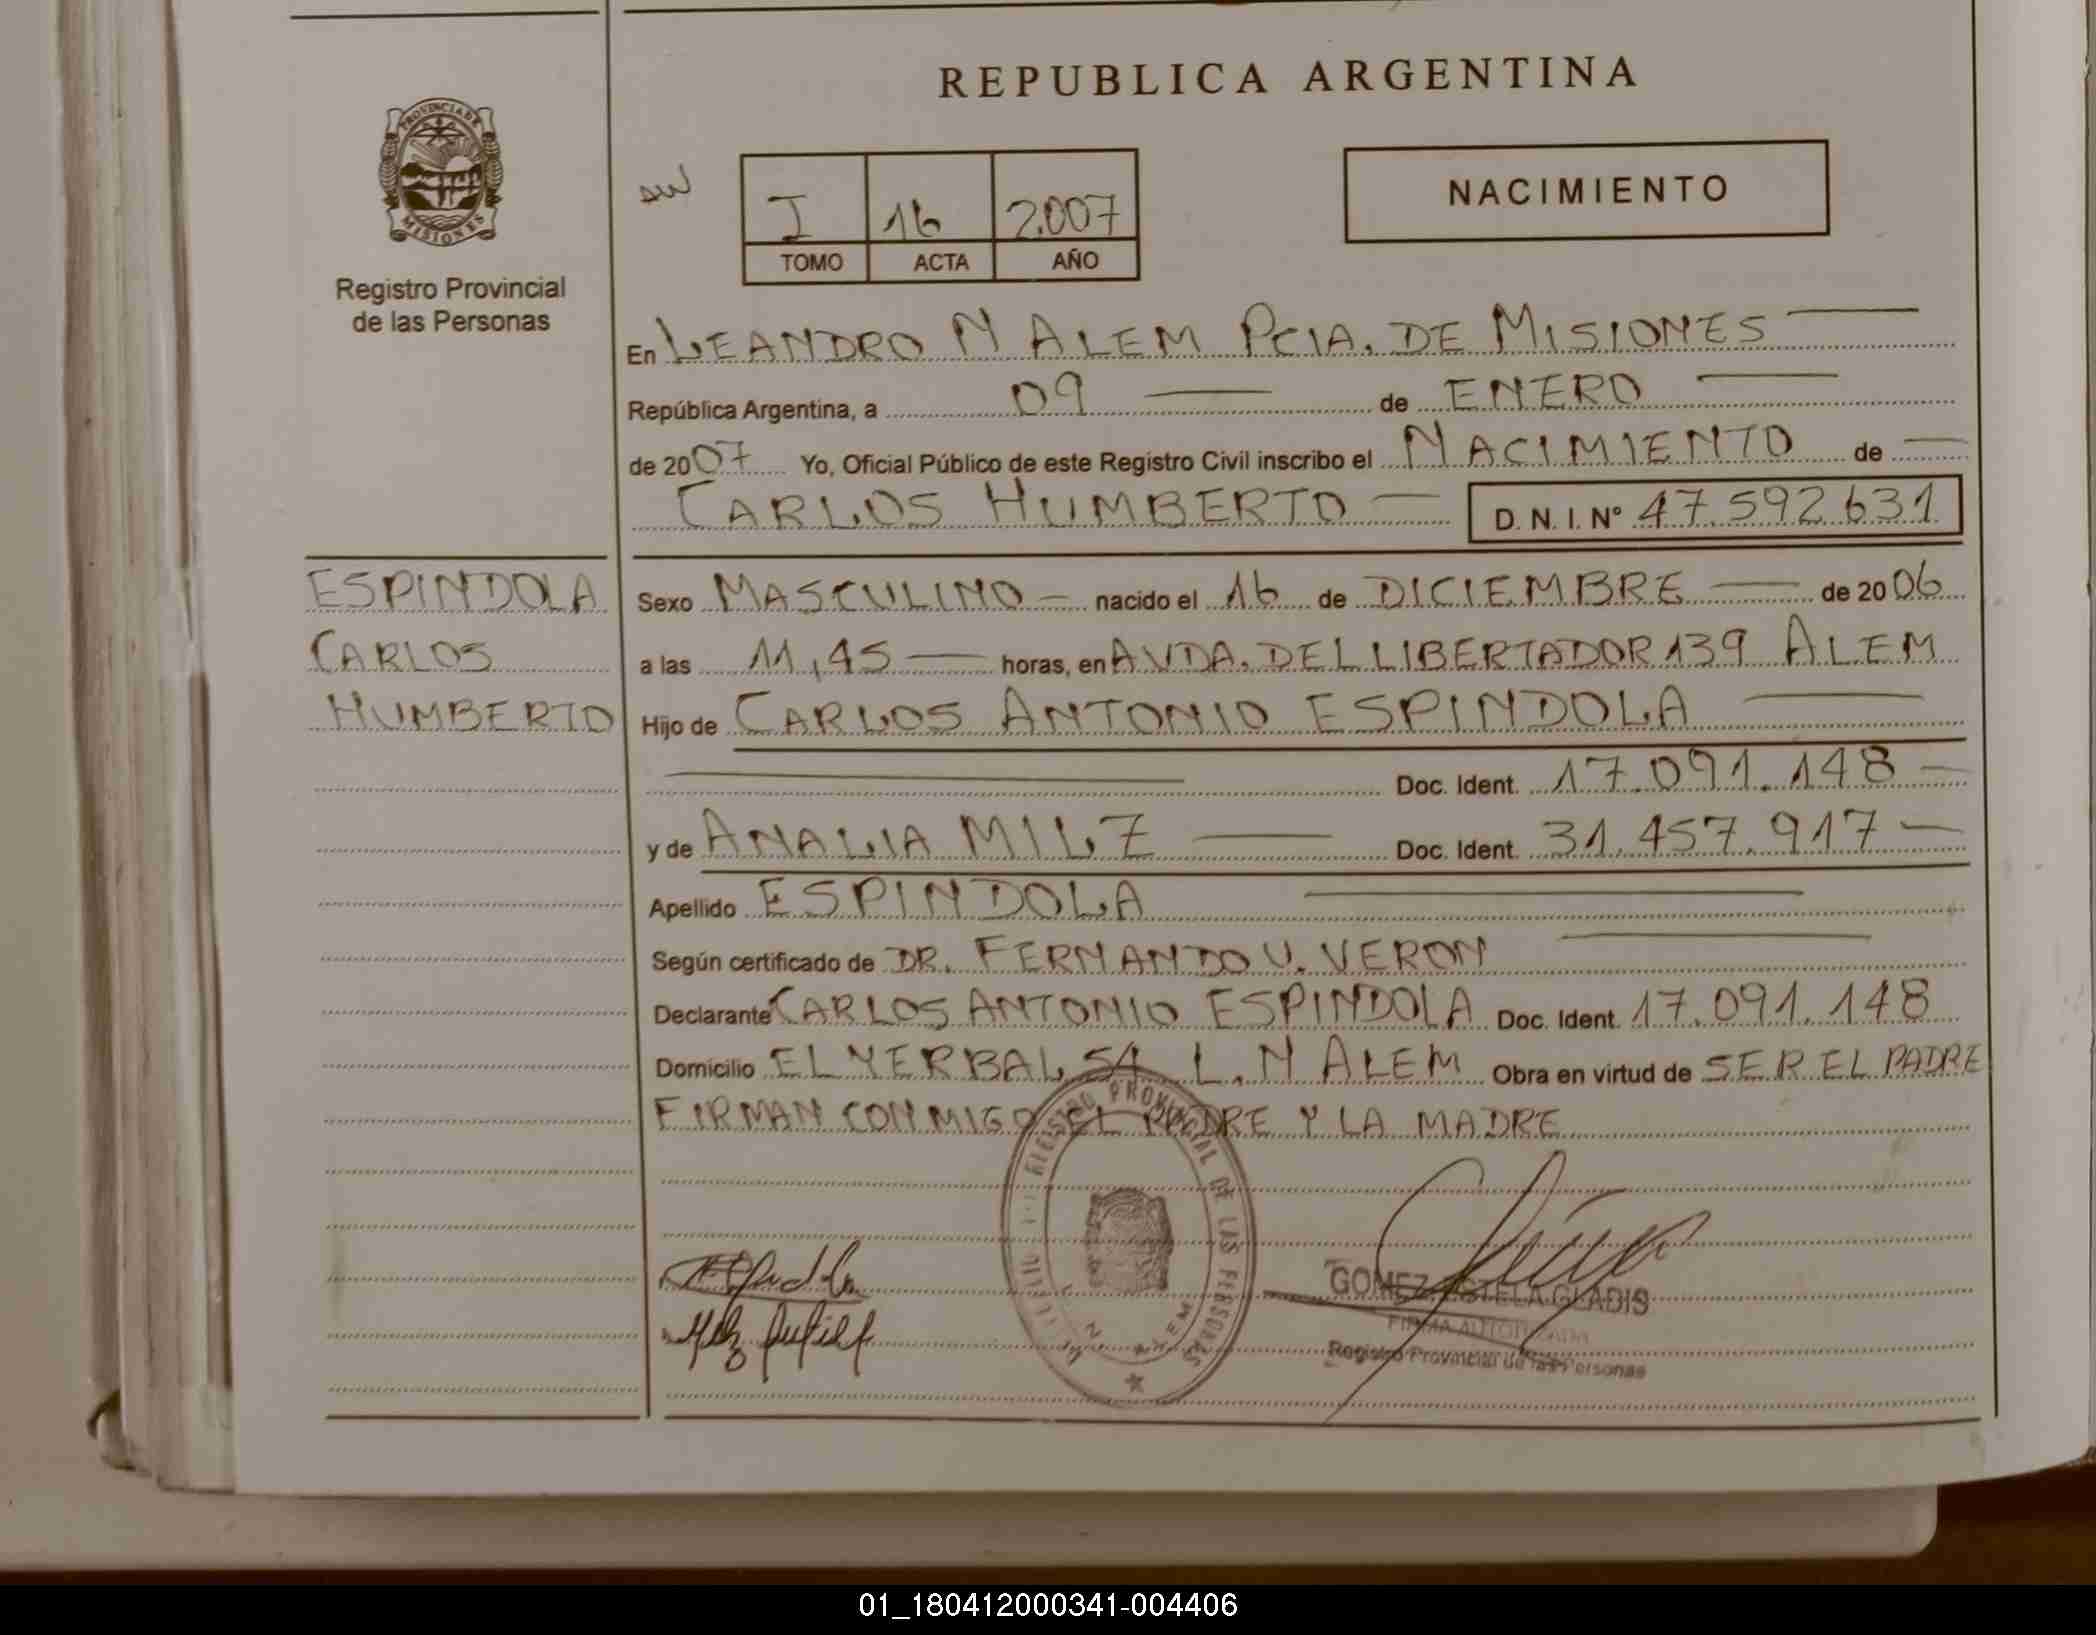 REPUBLICA ARGENTINA
PROVINCIA DE MISIONES
Registro Provincial
de las Personas
I 16 2.007
TOMO ACTA AÑO
NACIMIENTO
En LEANDRO N ALEM PCIA. DE MISIONES
República Argentina, a 09 de ENERO
de 2007 Yo, Oficial Público de este Registro Civil inscribo el NACIMIENTO de
CARLOS HUMBERTO D. N. I. Nº 47.592.631
ESPINDOLA
CARLOS
HUMBERTO
Sexo MASCULINO nacido el 16 de DICIEMBRE de 2006
a las 11,45 horas, en AVDA. DEL LIBERTADOR 139 ALEM
Hijo de CARLOS ANTONIO ESPINDOLA
Doc. Ident. 17.091.148
y de ANALIA MILZ Doc. Ident. 31.457.917
Apellido ESPINDOLA
Según certificado de DR. FERNANDO V. VERON
Declarante CARLOS ANTONIO ESPINDOLA Doc. Ident. 17.091.148
Domicilio EL YERBAL 54 L. N ALEM Obra en virtud de SER EL PADRE
FIRMAN CONMIGO EL PADRE Y LA MADRE
REGISTRO PROVINCIAL DE LAS PERSONAS
N. ALEM
GOMEZ ESTELA GLADIS
FIRMA AUTORIZADA
Registro Provincial de las Personas
01_180412000341-004406